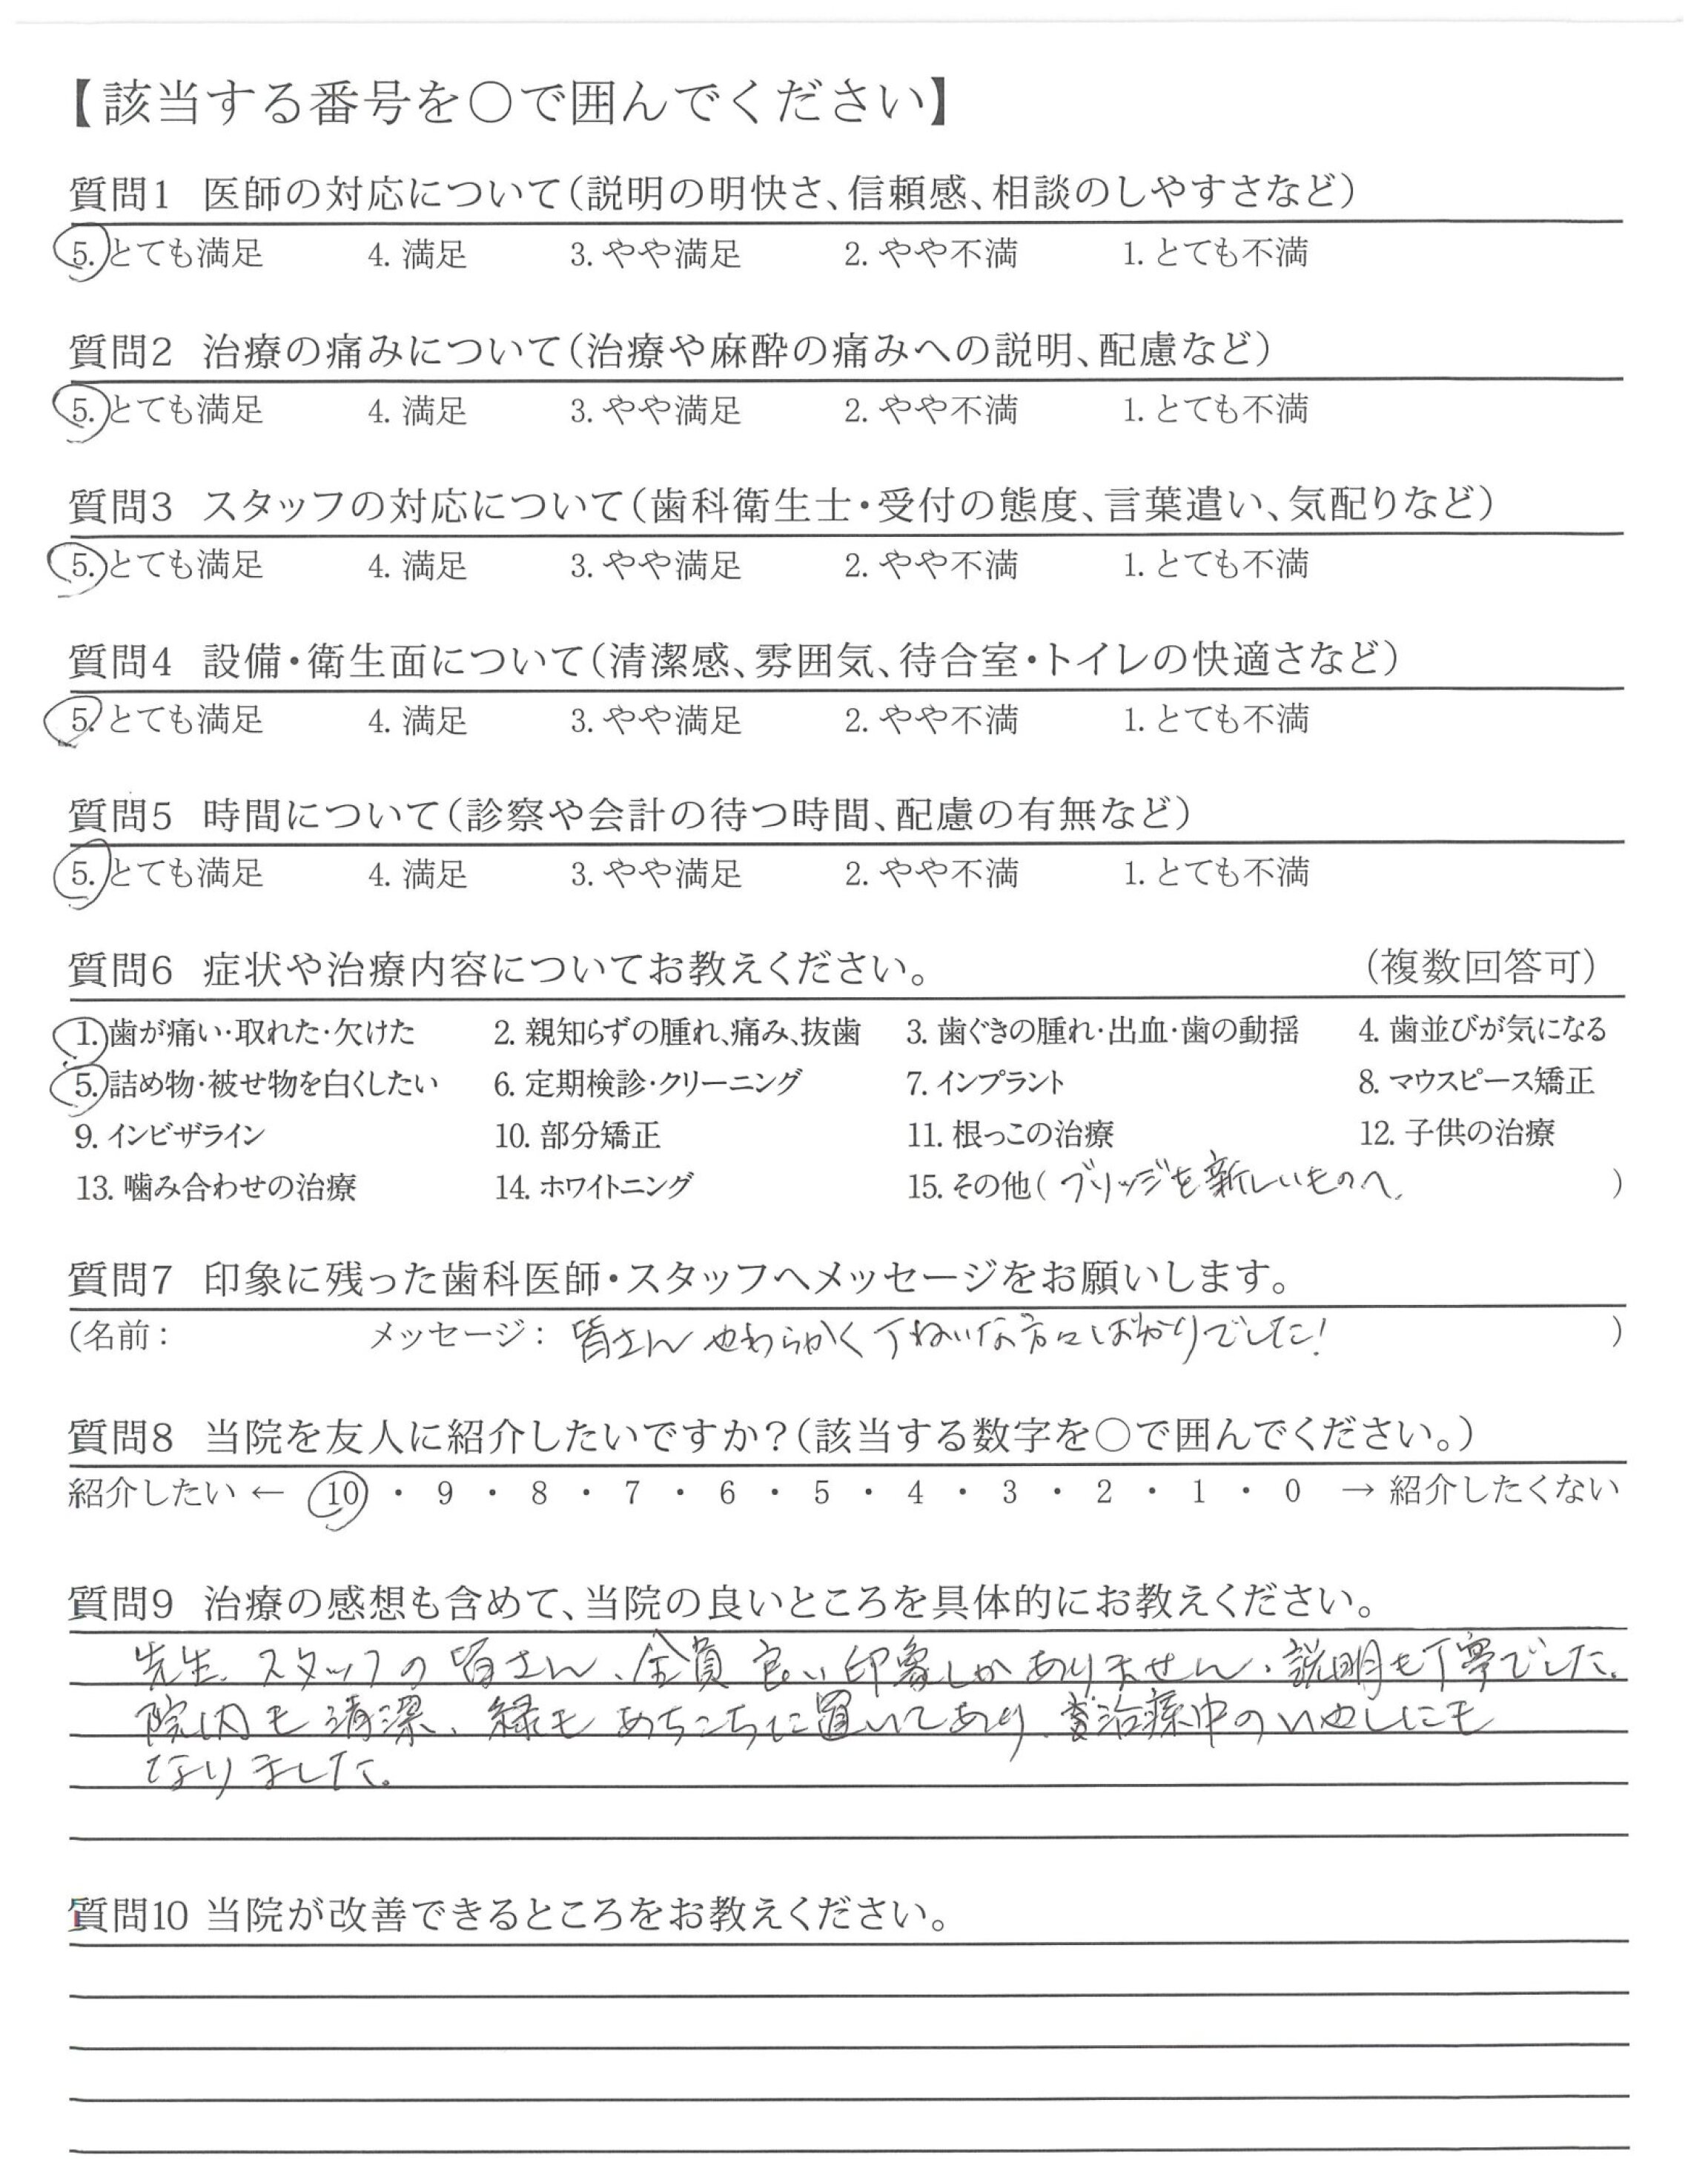 【該当する番号を○で囲んでください】
質問1 医師の対応について(説明の明快さ、信頼感、相談のしやすさなど)
5. とても満足 4. 満足 3. やや満足 2. やや不満 1. とても不満
質問2 治療の痛みについて(治療や麻酔の痛みへの説明、配慮など)
5. とても満足 4. 満足 3. やや満足 2. やや不満 1. とても不満
質問3 スタッフの対応について(歯科衛生士・受付の態度、言葉遣い、気配りなど)
5. とても満足 4. 満足 3. やや満足 2. やや不満 1. とても不満
質問4 設備・衛生面について(清潔感、雰囲気、待合室・トイレの快適さなど)
5. とても満足 4. 満足 3. やや満足 2. やや不満 1. とても不満
質問5 時間について(診察や会計の待つ時間、配慮の有無など)
5. とても満足 4. 満足 3. やや満足 2. やや不満 1. とても不満
質問6 症状や治療内容についてお教えください。 (複数回答可)
1. 歯が痛い・取れた・欠けた 2. 親知らずの腫れ、痛み、抜歯 3. 歯ぐきの腫れ・出血・歯の動揺 4. 歯並びが気になる
5. 詰め物・被せ物を白くしたい 6. 定期検診・クリーニング 7. インプラント 8. マウスピース矯正
9. インビザライン 10. 部分矯正 11. 根っこの治療 12. 子供の治療
13. 噛み合わせの治療 14. ホワイトニング 15. その他( ブリッジを新しいものへ。 )
質問7 印象に残った歯科医師・スタッフへメッセージをお願いします。
(名前: メッセージ: 皆さんやわらかくてねいな方々ばかりでした! )
質問8 当院を友人に紹介したいですか?(該当する数字を○で囲んでください。)
紹介したい ← 10 ・ 9 ・ 8 ・ 7 ・ 6 ・ 5 ・ 4 ・ 3 ・ 2 ・ 1 ・ 0 → 紹介したくない
質問9 治療の感想も含めて、当院の良いところを具体的にお教えください。
先生、スタッフの皆さん、全員良い印象しかありません。説明も丁寧でした。
院内も清潔、緑もあちこちに置いてあり、治療中のいやしにも
なりました。
質問10 当院が改善できるところをお教えください。